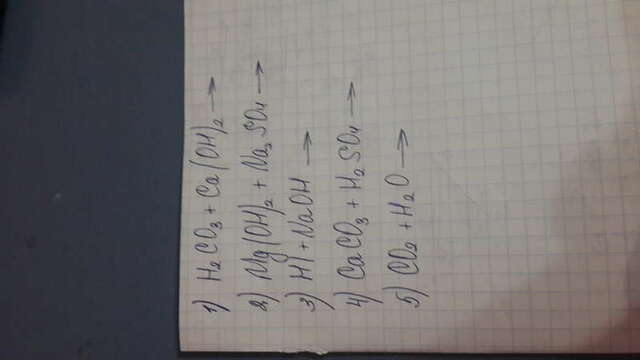 1) H₂CO₃ + Ca(OH)₂ →
2) Mg(OH)₂ + Na₂SO₄ →
3) HI + NaOH →
4) CaCO₃ + H₂SO₄ →
5) CO₂ + H₂O →